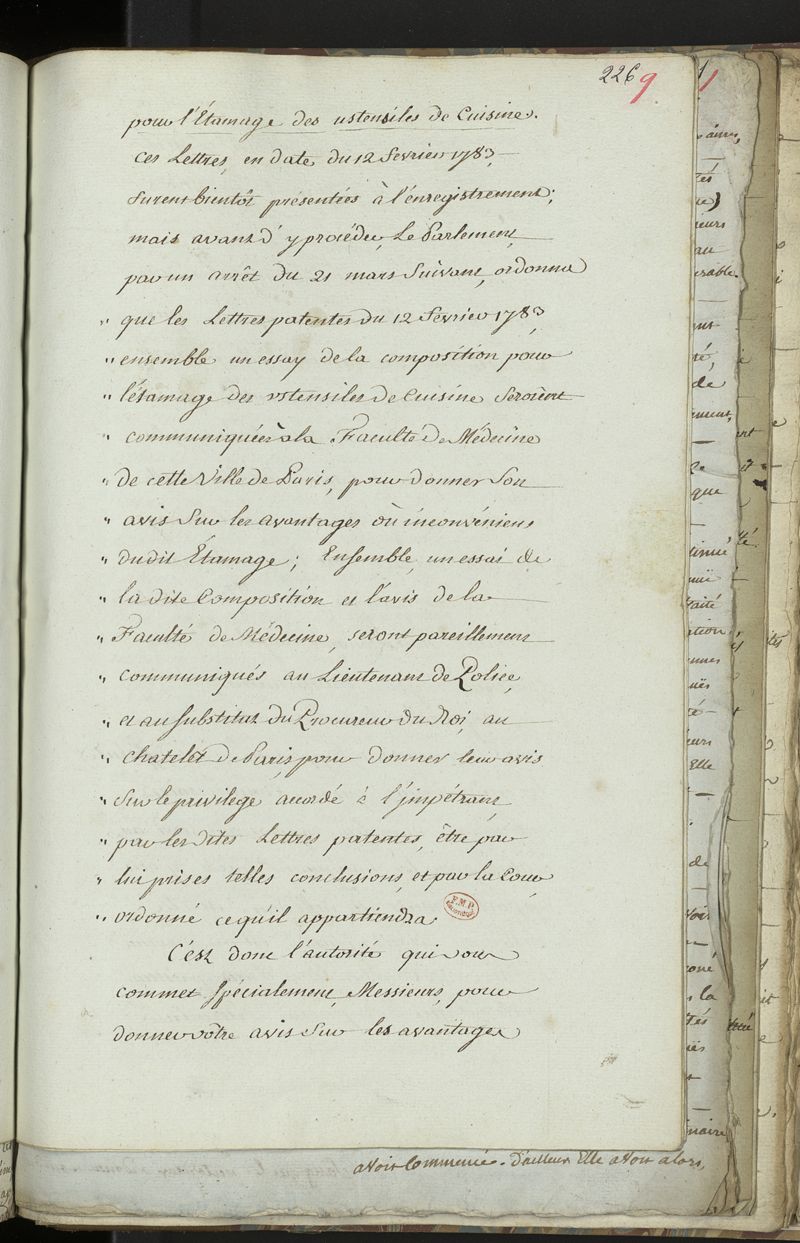 226 9
pour l'Étamage des ustensiles de Cuisine.
Ces Lettres, en date du 12 fevrier 1783,
furent bientôt présentées à l'enregistrement;
mais avant d'y procéder, Le Parlement,
par un arrêt du 21 mars suivant, ordonna
" que les Lettres patentes du 12 fevrier 1783
" ensemble un essay de la composition pour
" l'étamage des ustensiles de Cuisine seroient
" communiquées à la Faculté de Médecine
" de cette Ville de Paris, pour donner son
" avis sur les avantages où inconvéniens
" du dit Étamage; Ensemble un essai de
" la dite Composition et l'avis de la
" Faculté de Médecine, seront pareillement
" communiqués au Lieutenant de Police,
" et au substitut du Procureur du Roi, au
" chatelet de Paris, pour donner leur avis
" sur le privilege accordé à l'jmpétrant,
" par les dites Lettres patentes, être par
" lui prises telles conclusions, et par la Cour,
" ordonné ce qu'il appartiendra.
F.M.P.
C'est donc l'autorité qui vous
commet spécialement, Messieurs, pour
donner vôtre avis sur les avantages
avoit Commencé. D'ailleurs Elle avoit alors,